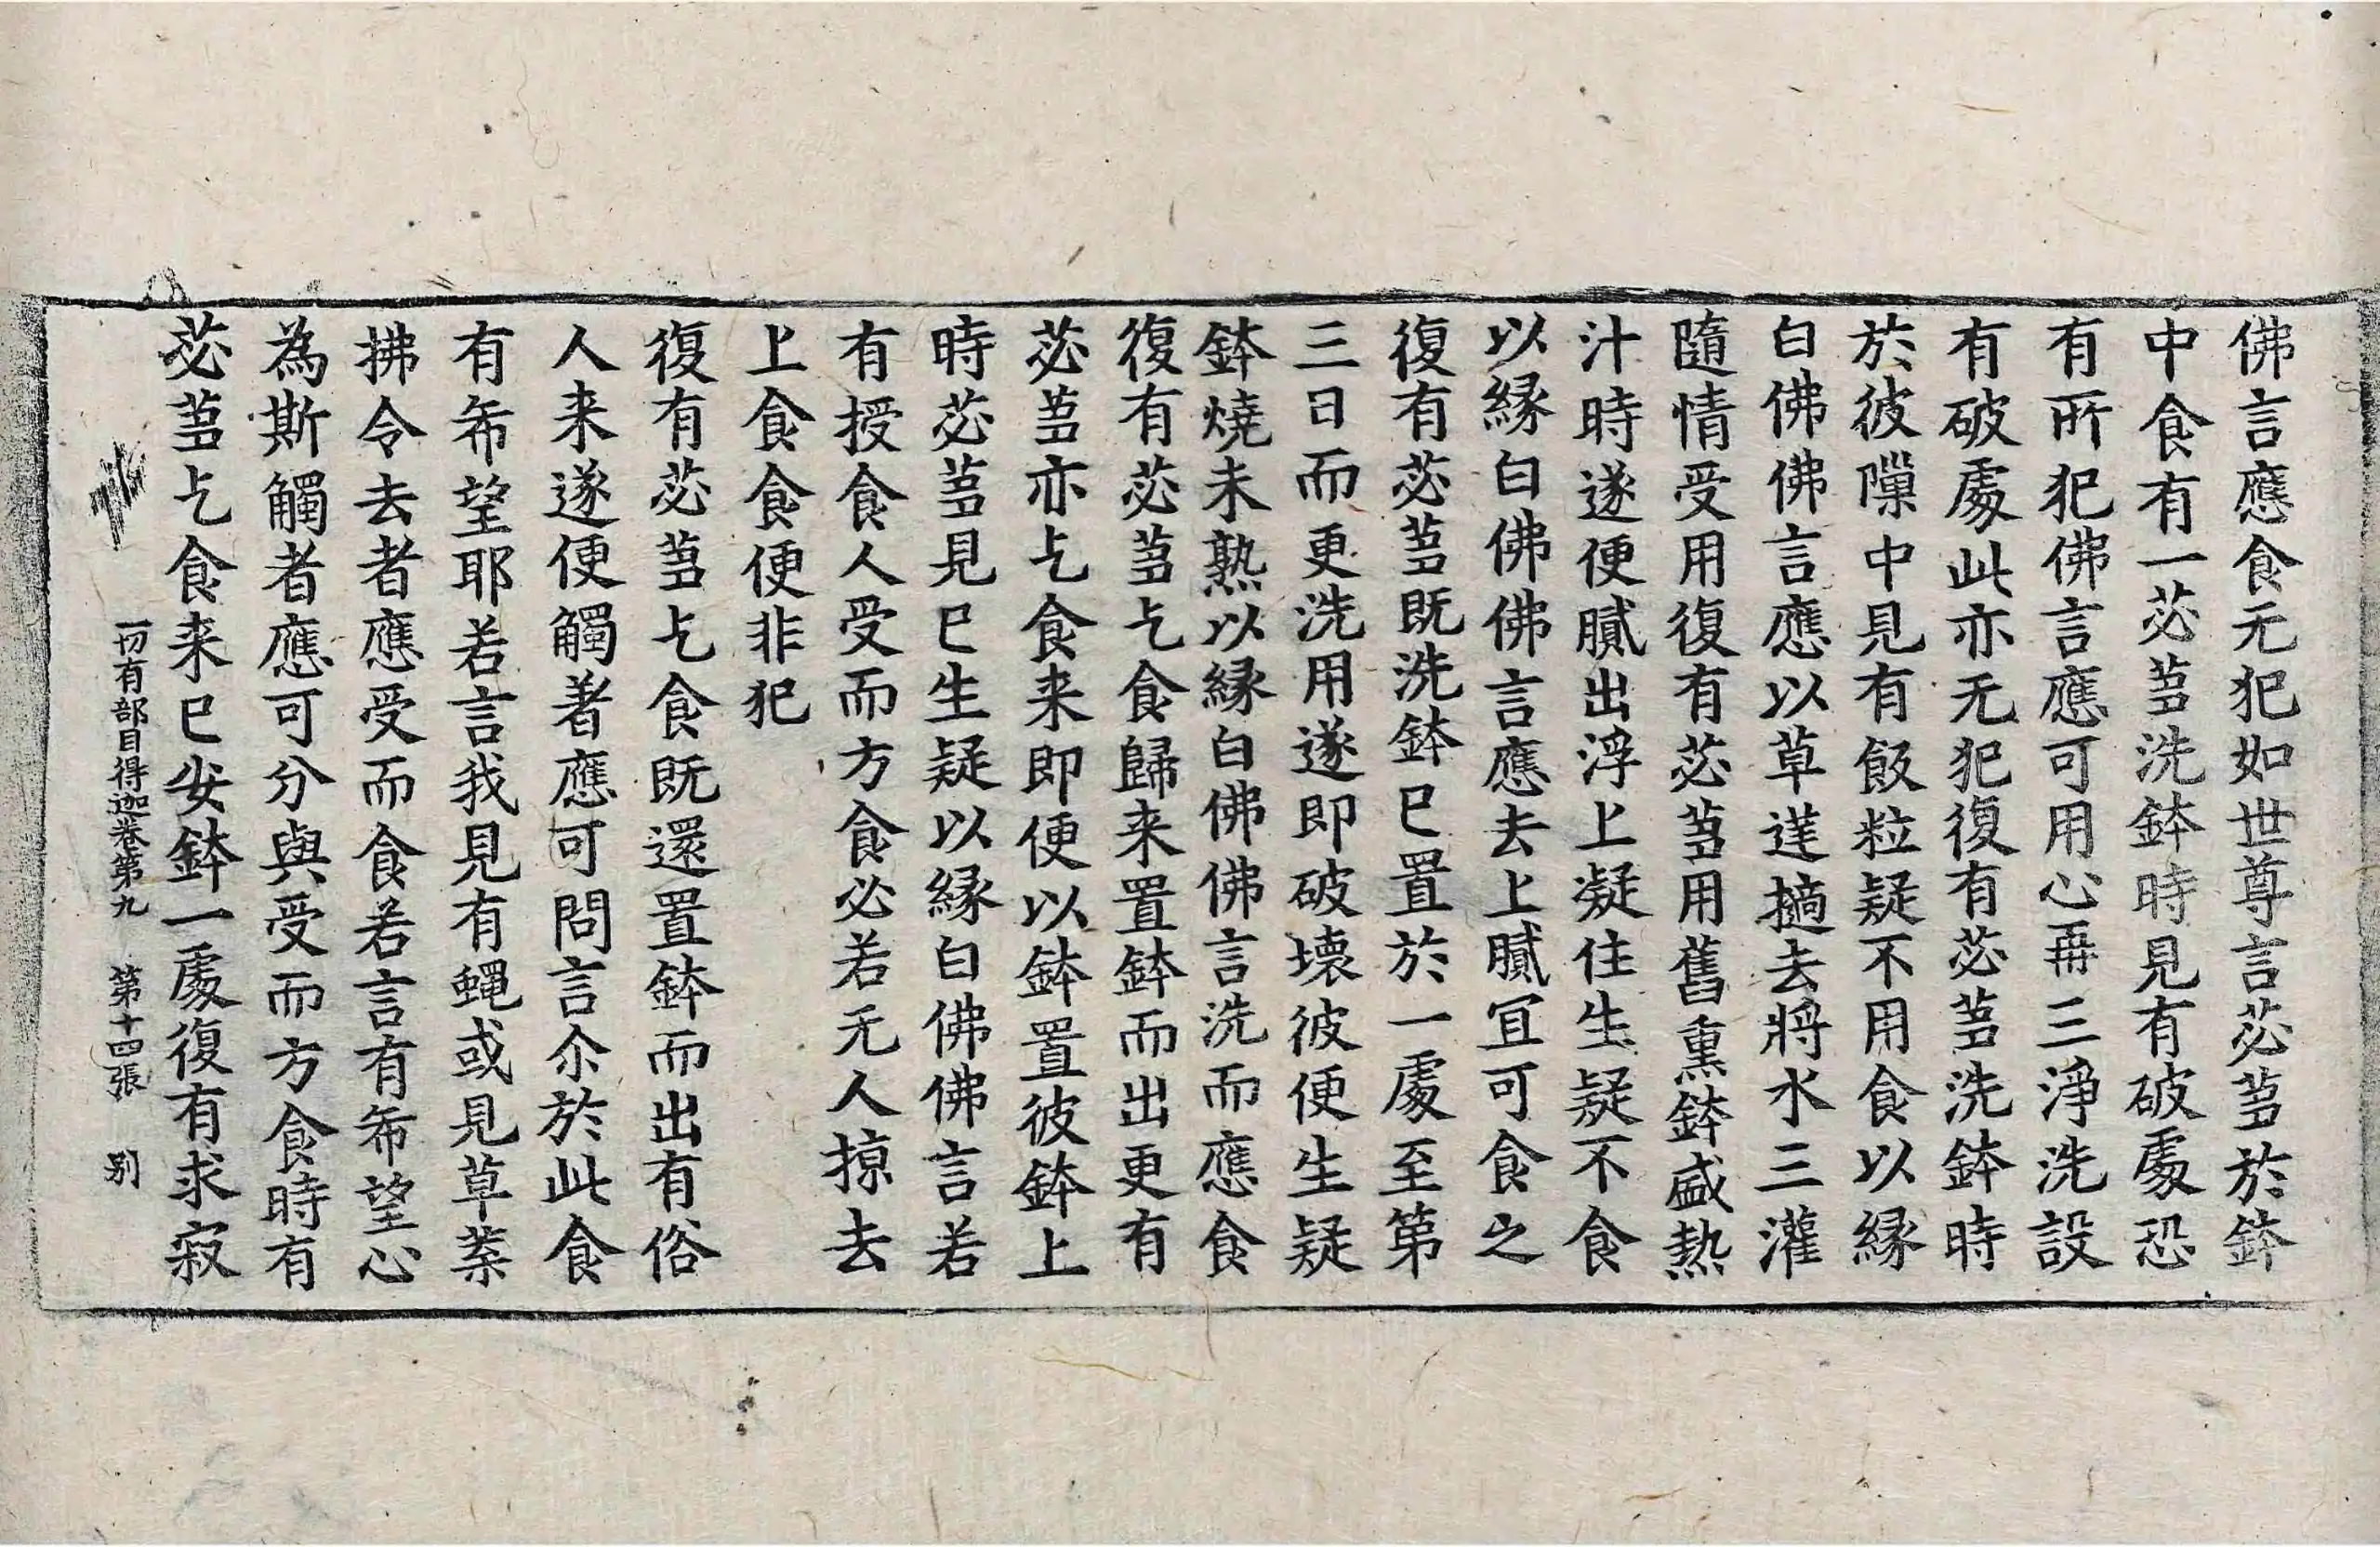 佛言應食无犯如世尊言苾蒭於鉢
中食有一苾蒭洗鉢時見有破處恐
有所犯佛言應可用心再三淨洗設
有破處此亦无犯復有苾蒭洗鉢時
於彼隟中見有飯粒疑不用食以緣
白佛佛言應以草莛擿去將水三灌
隨情受用復有苾蒭用舊熏鉢盛熱
汁時遂便膩出浮上凝住生疑不食
以緣白佛佛言應去上膩冝可食之
復有苾蒭既洗鉢已置於一處至第
三日而更洗用遂即破壞彼便生疑
鉢燒未熟以緣白佛佛言洗而應食
復有苾蒭乞食歸来置鉢而出更有
苾蒭亦乞食来即便以鉢置彼鉢上
時苾蒭見已生疑以緣白佛佛言若
有授食人受而方食必若无人掠去
上食食便非犯
復有苾蒭乞食既還置鉢而出有俗
人来遂便觸著應可問言尒於此食
有希望耶若言我見有蠅或見草葉
拂令去者應受而食若言有希望心
為斯觸者應可分與受而方食時有
苾蒭乞食来已安鉢一處復有求寂
一切有部目得迦卷第九 第十四張 别